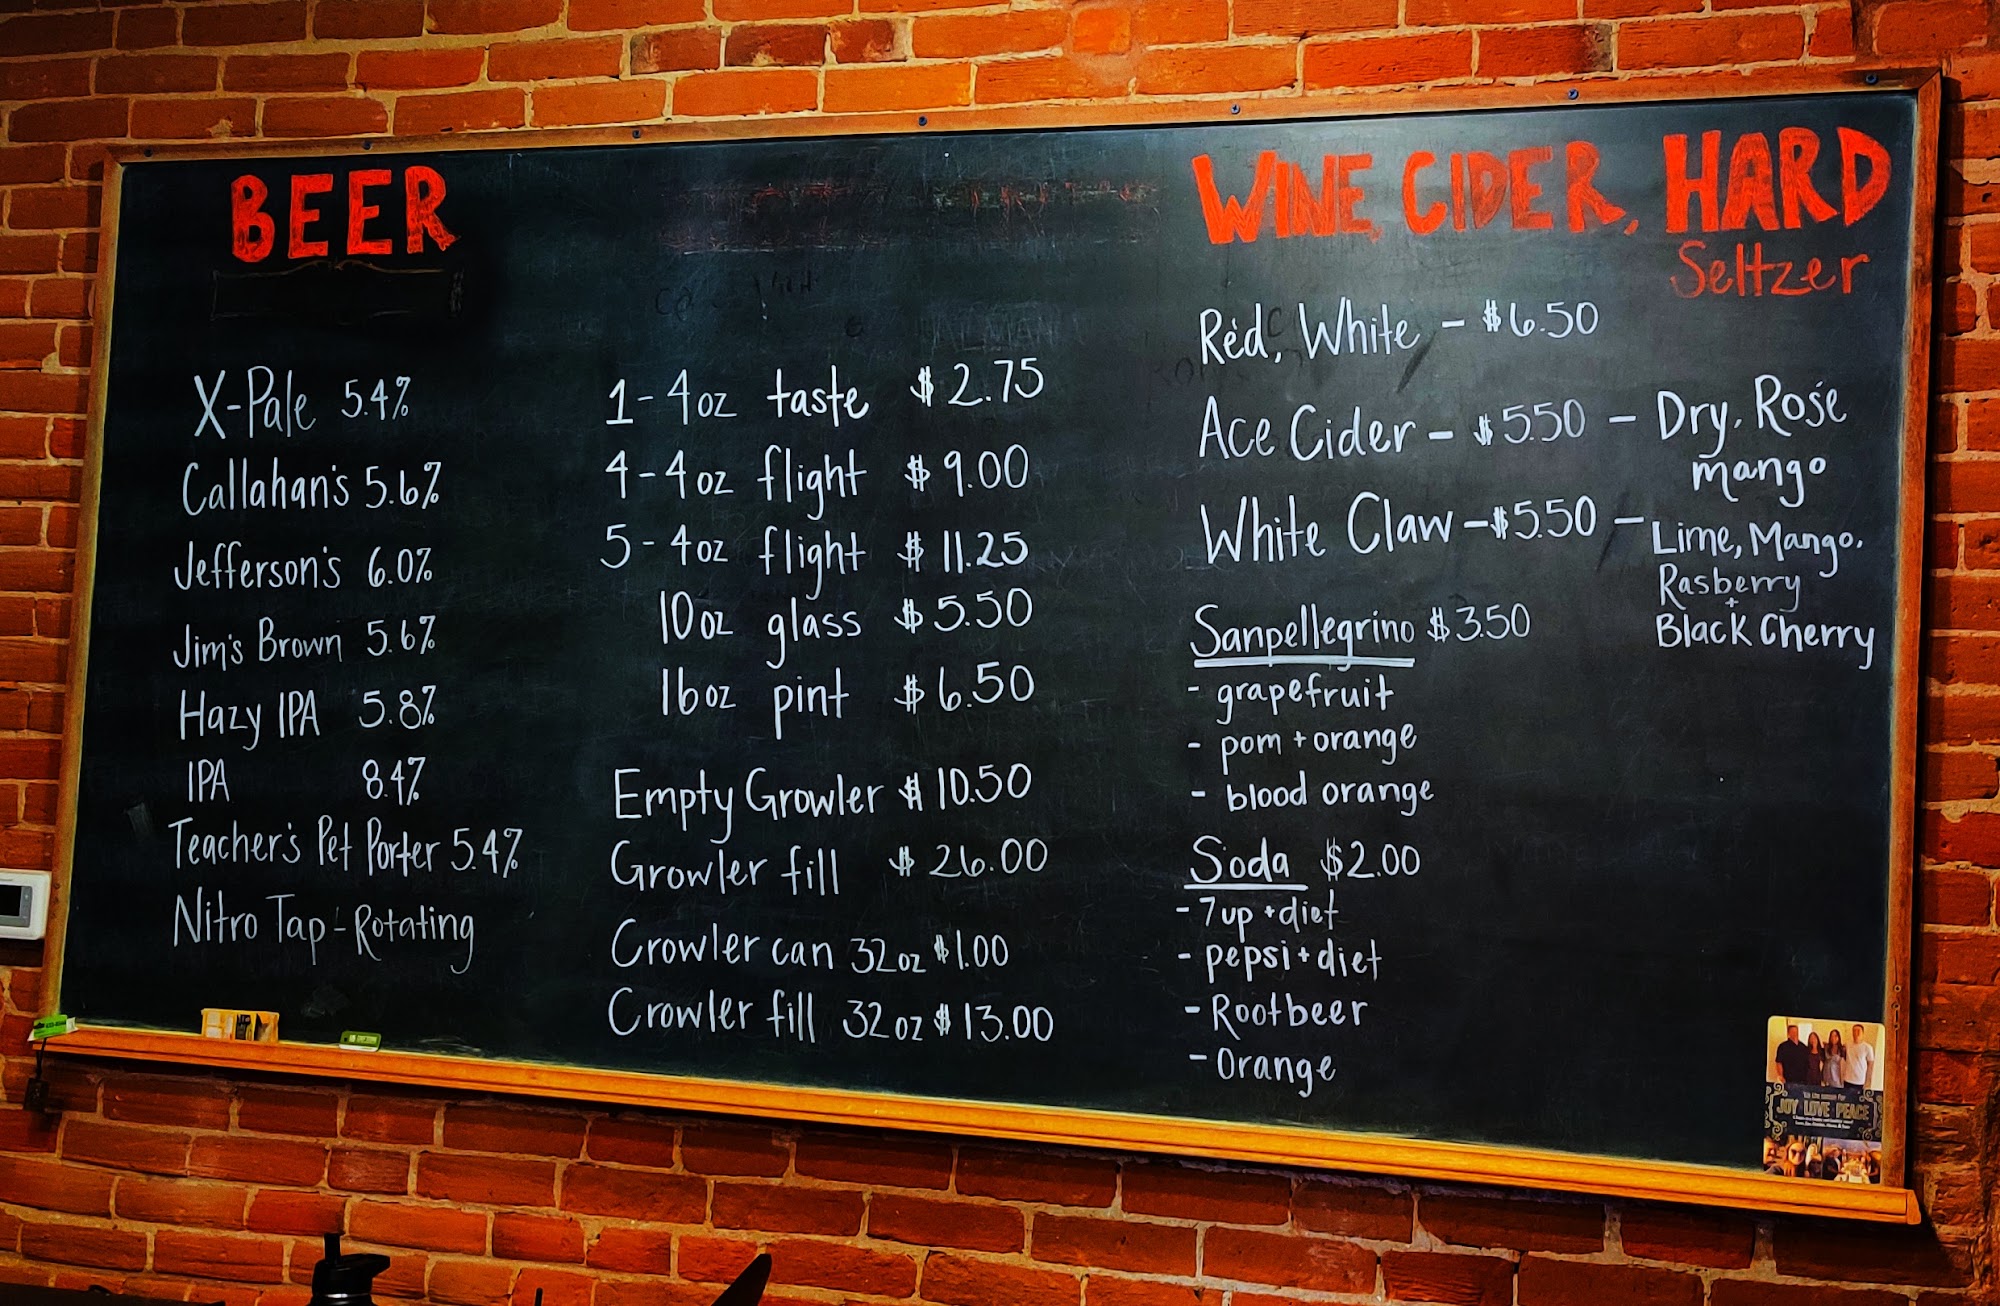 BEER
X-Pale 5.4%
Callahan's 5.6%
Jefferson's 6.0%
Jim's Brown 5.6%
Hazy IPA 5.8%
IPA 8.4%
Teacher's Pet Porter 5.4%
Nitro Tap - Rotating
1 - 4oz taste $2.75
4 - 4oz flight $9.00
5 - 4oz flight $11.25
10oz glass $5.50
16oz pint $6.50
Empty Growler $10.50
Growler fill $26.00
Crowler can 32oz $1.00
Crowler fill 32oz $13.00
WINE, CIDER, HARD
Seltzer
Red, White - $6.50
Ace Cider - $5.50 - Dry, Rosé
mango
White Claw - $5.50 - Lime, Mango,
Rasberry
+
Black Cherry
Sanpellegrino $3.50
- grapefruit
- pom + orange
- blood orange
Soda $2.00
- 7up + diet
- pepsi + diet
- Rootbeer
- Orange
JOY LOVE PEACE